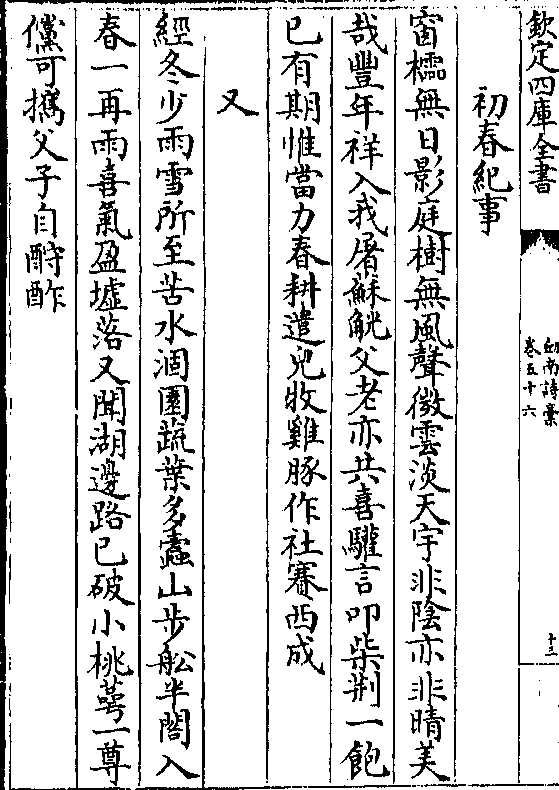 欽定四庫全書
劍南詩藁
卷五十六
十三
初春紀事
窗櫺無日影庭樹無風聲微雲淡天宇非陰亦非晴美
哉豐年祥入我屠蘇觥父老亦共喜驩言叩柴荆一飽
已有期惟當力春耕遣兒牧雞豚作社賽西成
又
經冬少雨雪所至苦水涸園蔬葉多蠹山步船半閣入
春一再雨喜氣盈墟落又聞湖邊路已破小桃萼一尊
儻可攜父子自酧酢